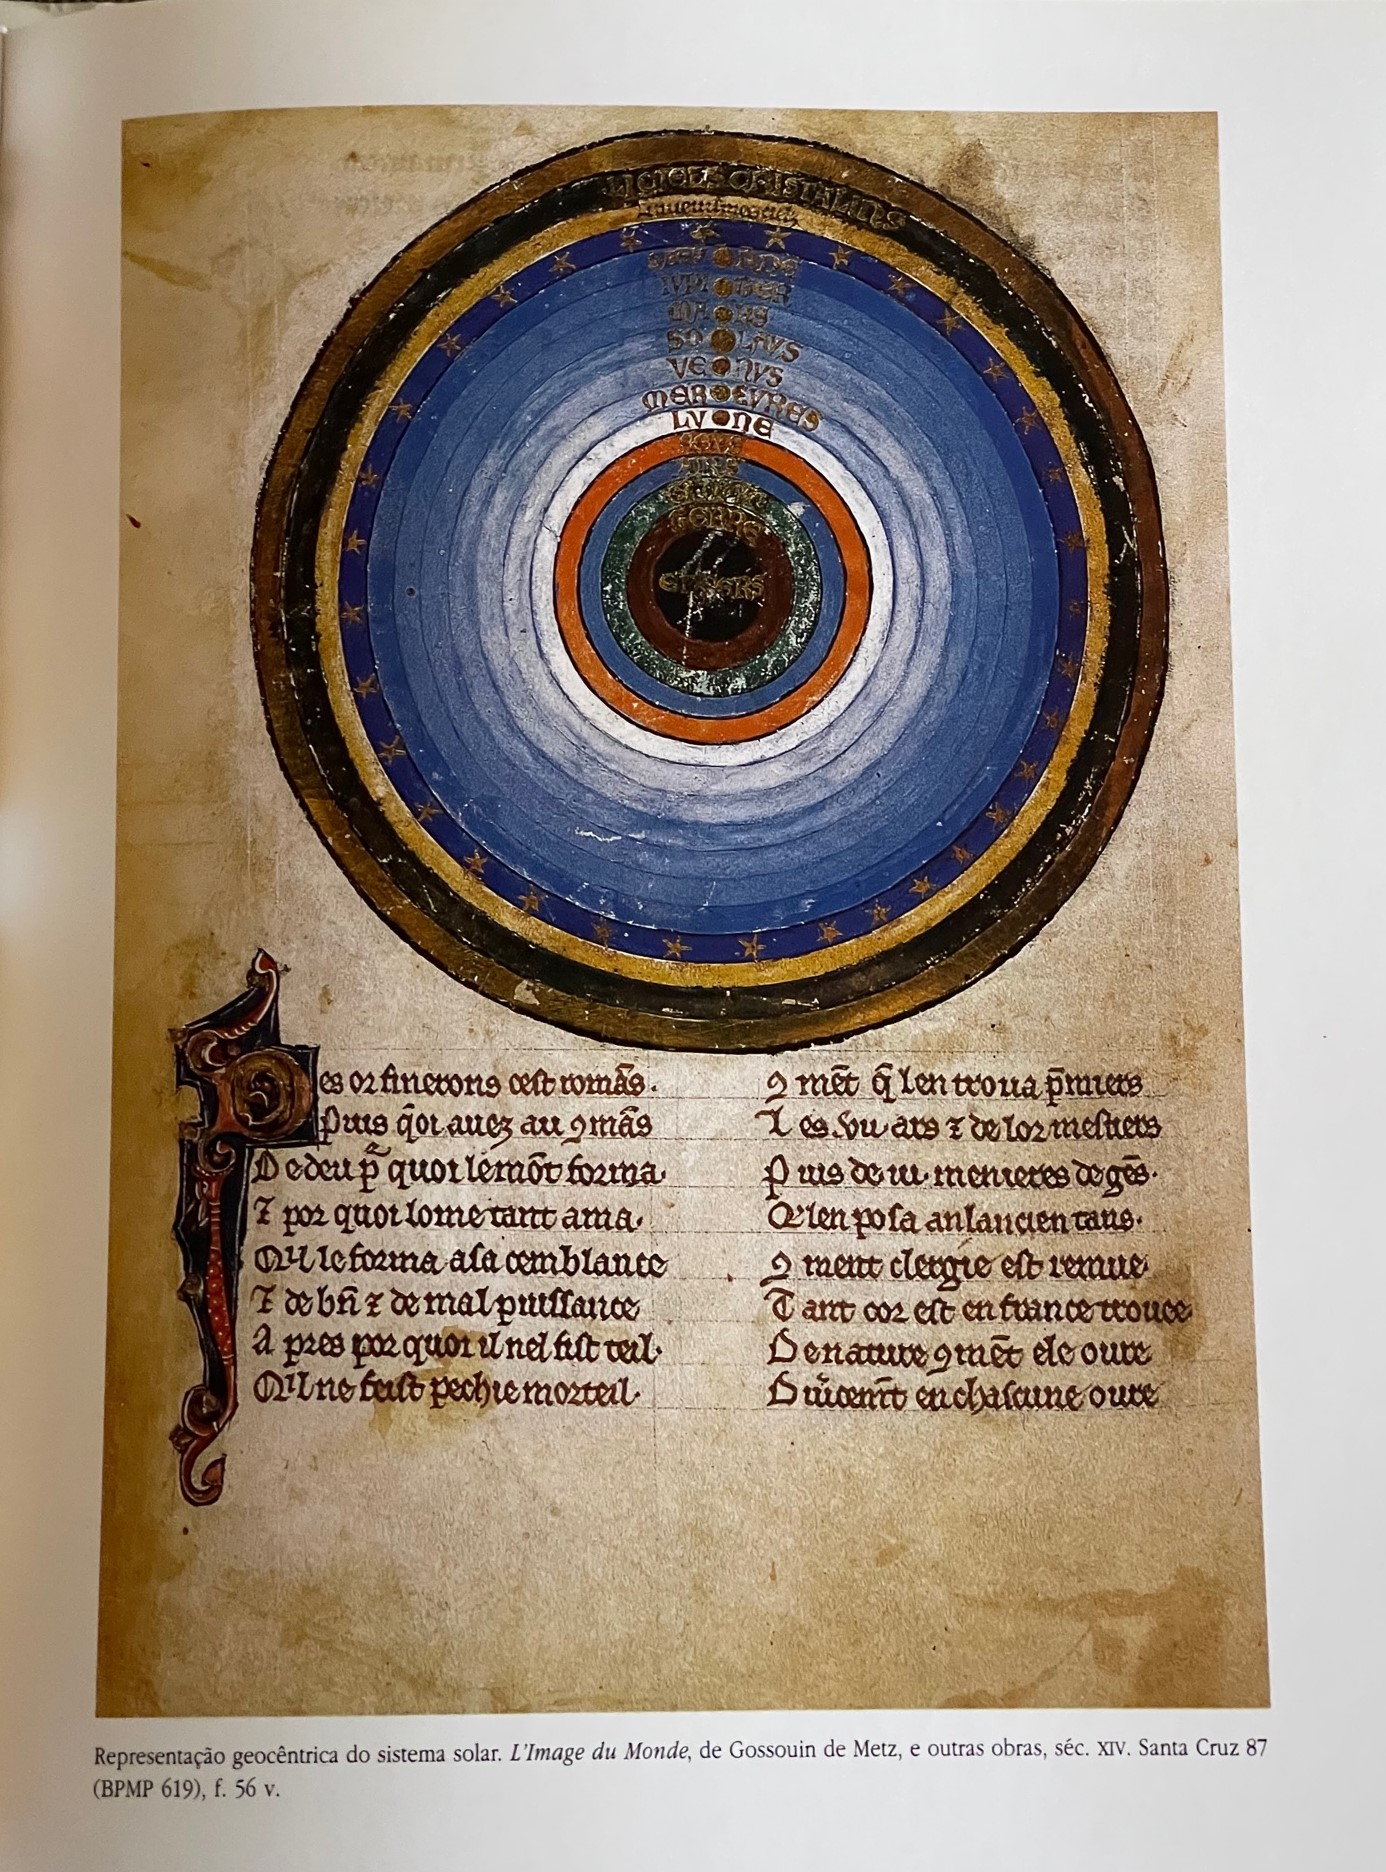 LI CIELS CRISTALINS
IVPITER
MARS
SOLAVS
VENVS
MERCEVRES
LVNE
AIRS
TERRE
ENFERS
Des or finerons cest romãs.
Puis q̃oi auez au ꝯmãs
De deu p̃ quoi le mõt forma.
⁊ por quoi lome tant ama.
Q'il le forma a sa cemblance
⁊ de bñ ⁊ de mal puissance
Apres por quoi il nel fist teil.
Q'il ne feist pechie morteil.
ꝯ mẽt q̃ len troua p̃miers
Les .vii. ars ⁊ de lor mestiers
Puis de .iii. menieres de gẽs.
Q'len posa an lancien tans.
ꝯ ment clergie est remue
Tant cor est en france trouee
De nature ꝯmẽt ele oure
en chascune oure
Representação geocêntrica do sistema solar. L'Image du Monde, de Gossouin de Metz, e outras obras, séc. XIV. Santa Cruz 87
(BPMP 619), f. 56 v.